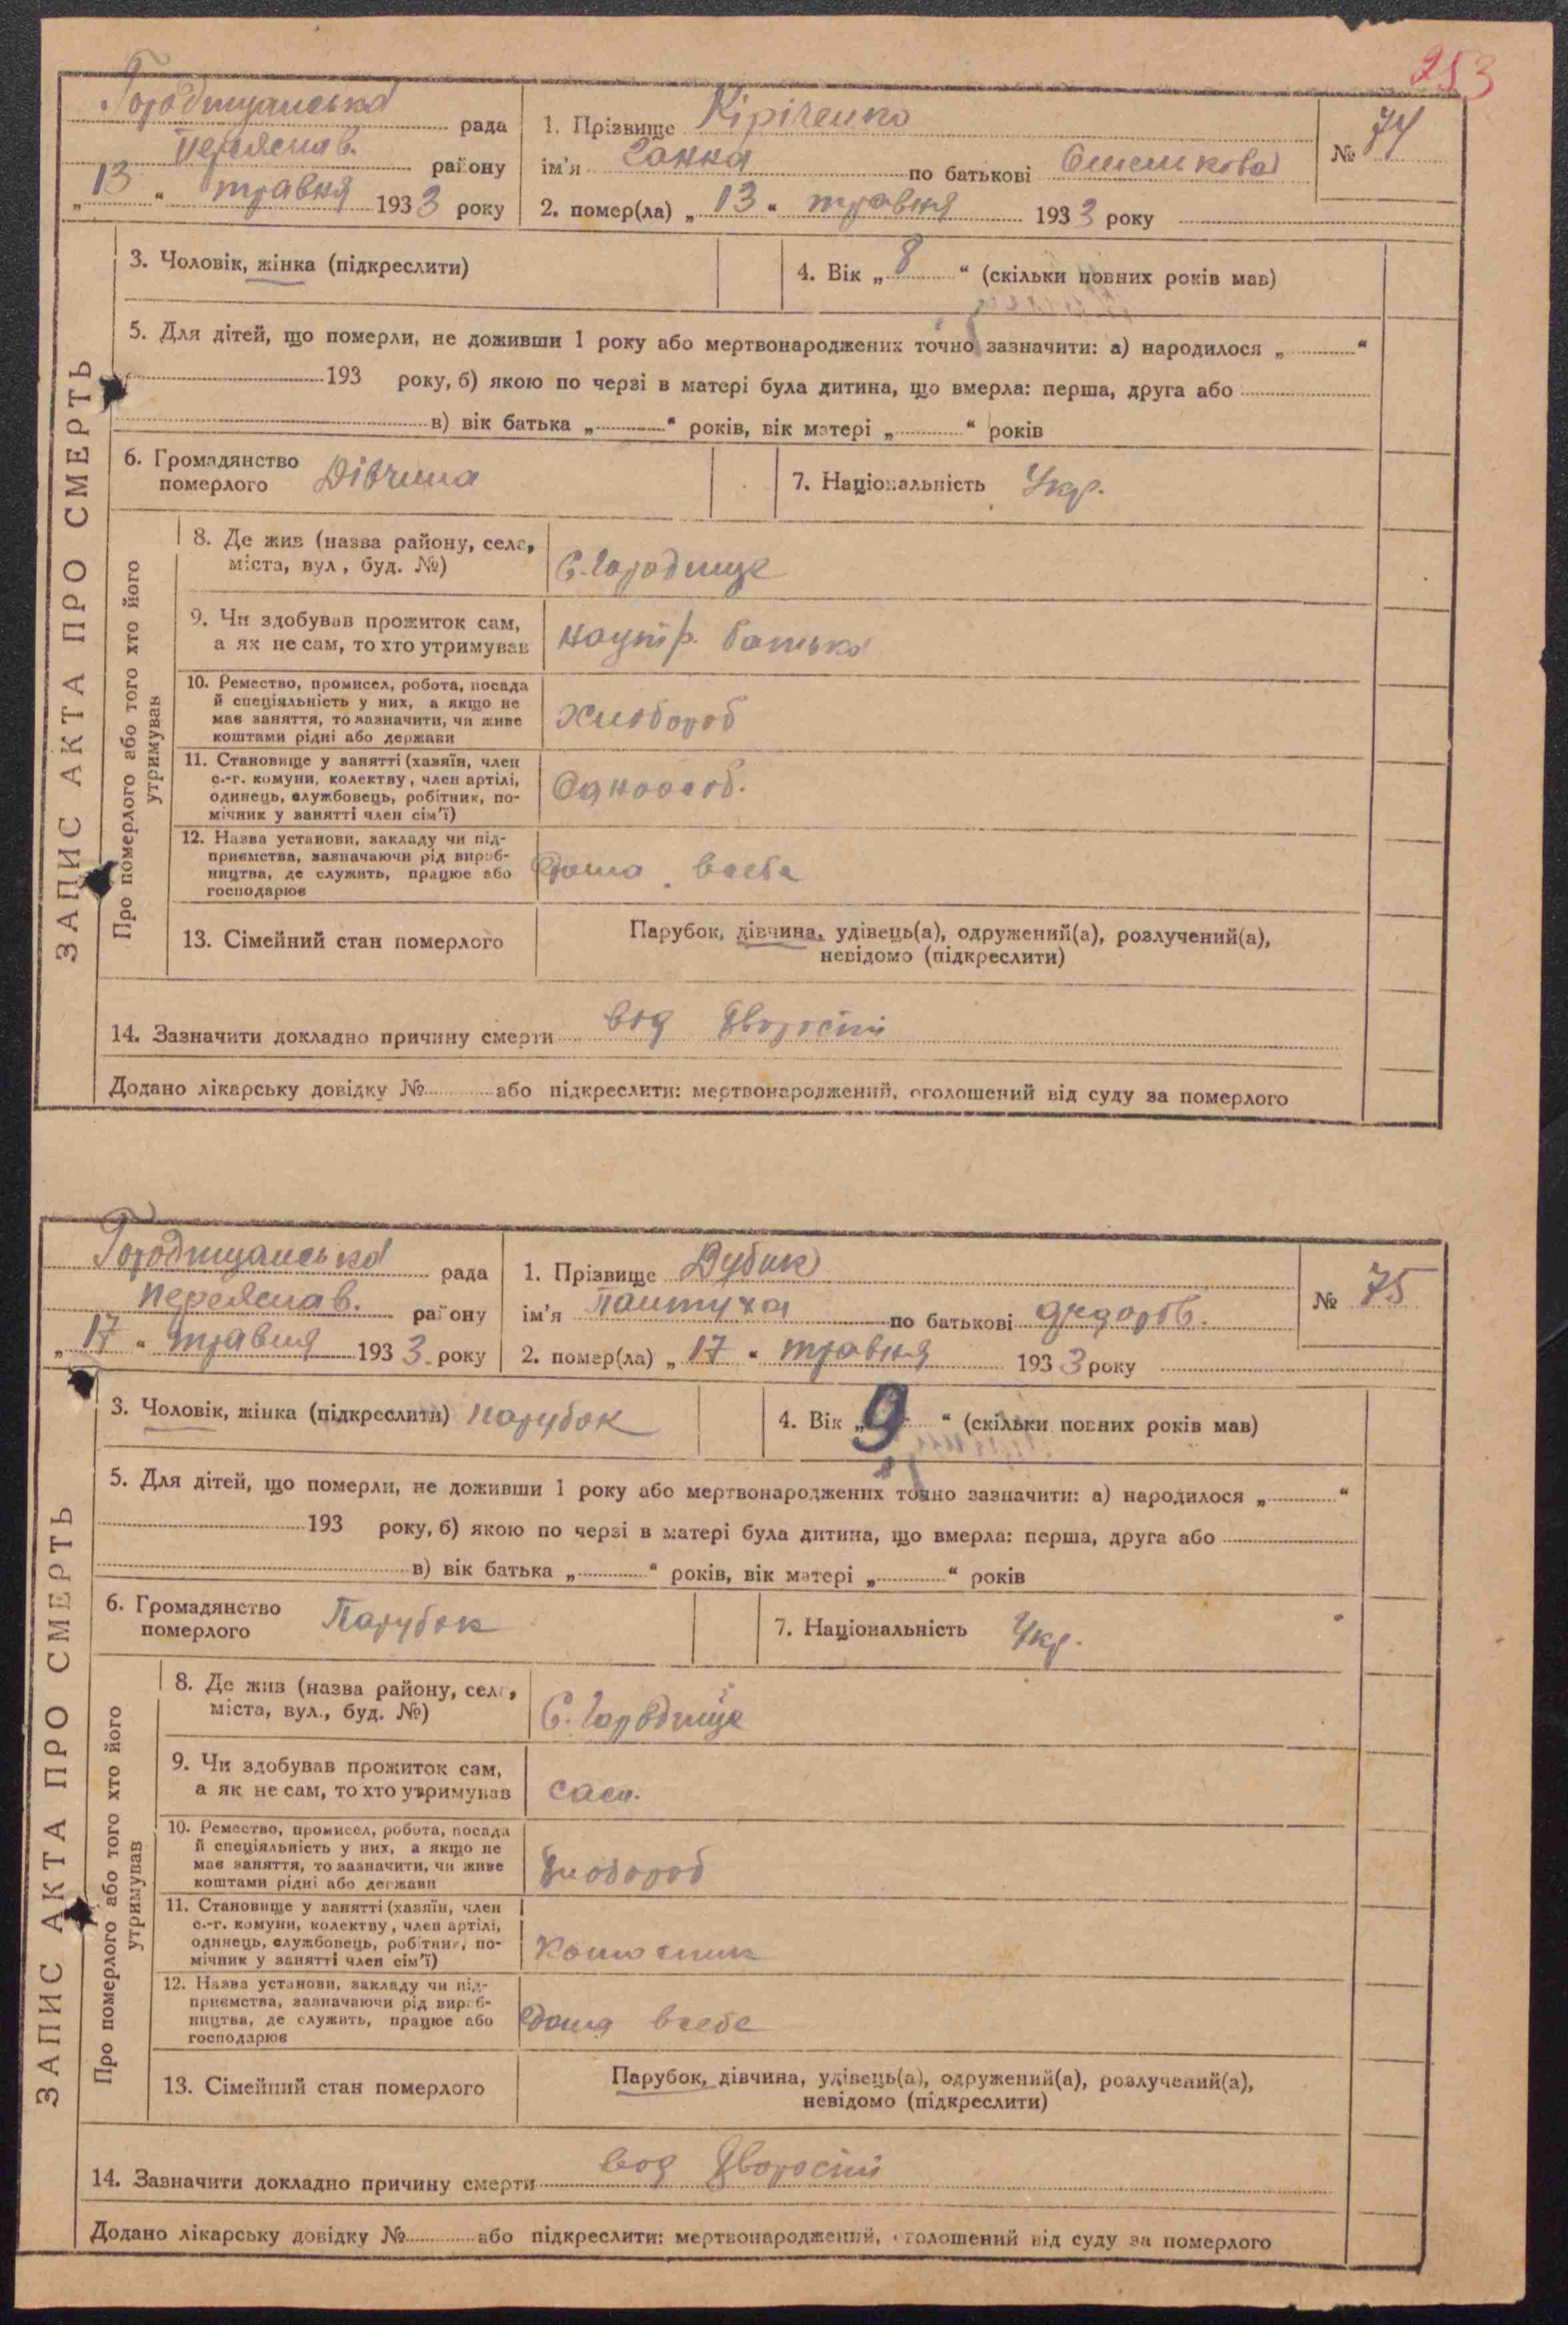 253
Городищанська рада
Переяслав. району
„ 13 “ травня 1933 року
1. Прізвище Кіріченко
ім'я Ганна по батькові
2. помер(ла) „ 13 “ травня 1933 року
№ 74
ЗАПИС АКТА ПРО СМЕРТЬ
3. Чоловік, жінка (підкреслити)
4. Вік „ 8 “ (скільки повних років мав)
5. Для дітей, що померли, не доживши 1 року або мертвонароджених точно зазначити: а) народилося „ “
193 року, б) якою по черзі в матері була дитина, що вмерла: перша, друга або
в) вік батька „ “ років, вік матері „ “ років
6. Громадянство
померлого Дівчина
7. Національність Укр.
Про померлого або того хто його
утримував
8. Де жив (назва району, села,
міста, вул, буд. №)
С. Городище
9. Чи здобував прожиток сам,
а як не сам, то хто утримував
батька
10. Ремество, промисел, робота, посада
й спеціяльність у них, а якщо не
має заняття, то зазначити, чи живе
коштами рідні або держави
Хлібороб
11. Становище у занятті (хазяїн, член
с.-г. комуни, колектву, член артілі,
одинець, службовець, робітник, по-
мічник у занятті член сім'ї)
Одноосіб.
12. Назва установи, закладу чи під-
приємства, зазначаючи рід вироб-
ництва, де служить, працює або
господарює
дома в себе
13. Сімейний стан померлого
Парубок, дівчина, удівець(а), одружений(а), розлучений(а),
невідомо (підкреслити)
14. Зазначити докладно причину смерти
Додано лікарську довідку № або підкреслити: мертвонароджений, оголошений від суду за померлого
Городищанська рада
Переяслав. району
„ 17 “ травня 1933 року
1. Прізвище Дубик
ім'я по батькові
2. помер(ла) „ 17 “ травня 1933 року
№ 75
ЗАПИС АКТА ПРО СМЕРТЬ
3. Чоловік, жінка (підкреслити) парубок
4. Вік „ 9 “ (скільки повних років мав)
5. Для дітей, що померли, не доживши 1 року або мертвонароджених точно зазначити: а) народилося „ “
193 року, б) якою по черзі в матері була дитина, що вмерла: перша, друга або
в) вік батька „ “ років, вік матері „ “ років
6. Громадянство
померлого Парубок
7. Національність Укр.
Про померлого або того хто його
утримував
8. Де жив (назва району, села,
міста, вул., буд. №)
С. Городище
9. Чи здобував прожиток сам,
а як не сам, то хто утримував
сам.
10. Ремество, промисел, робота, посада
й спеціяльність у них, а якщо не
має заняття, то зазначити, чи живе
коштами рідні або держави
Хлібороб
11. Становище у занятті (хазяїн, член
с.-г. комуни, колектву, член артілі,
одинець, службовець, робітник, по-
мічник у занятті член сім'ї)
12. Назва установи, закладу чи під-
приємства, зазначаючи рід вироб-
ництва, де служить, працює або
господарює
дома в себе
13. Сімейний стан померлого
Парубок, дівчина, удівець(а), одружений(а), розлучений(а),
невідомо (підкреслити)
14. Зазначити докладно причину смерти
Додано лікарську довідку № або підкреслити: мертвонароджений, оголошений від суду за померлого